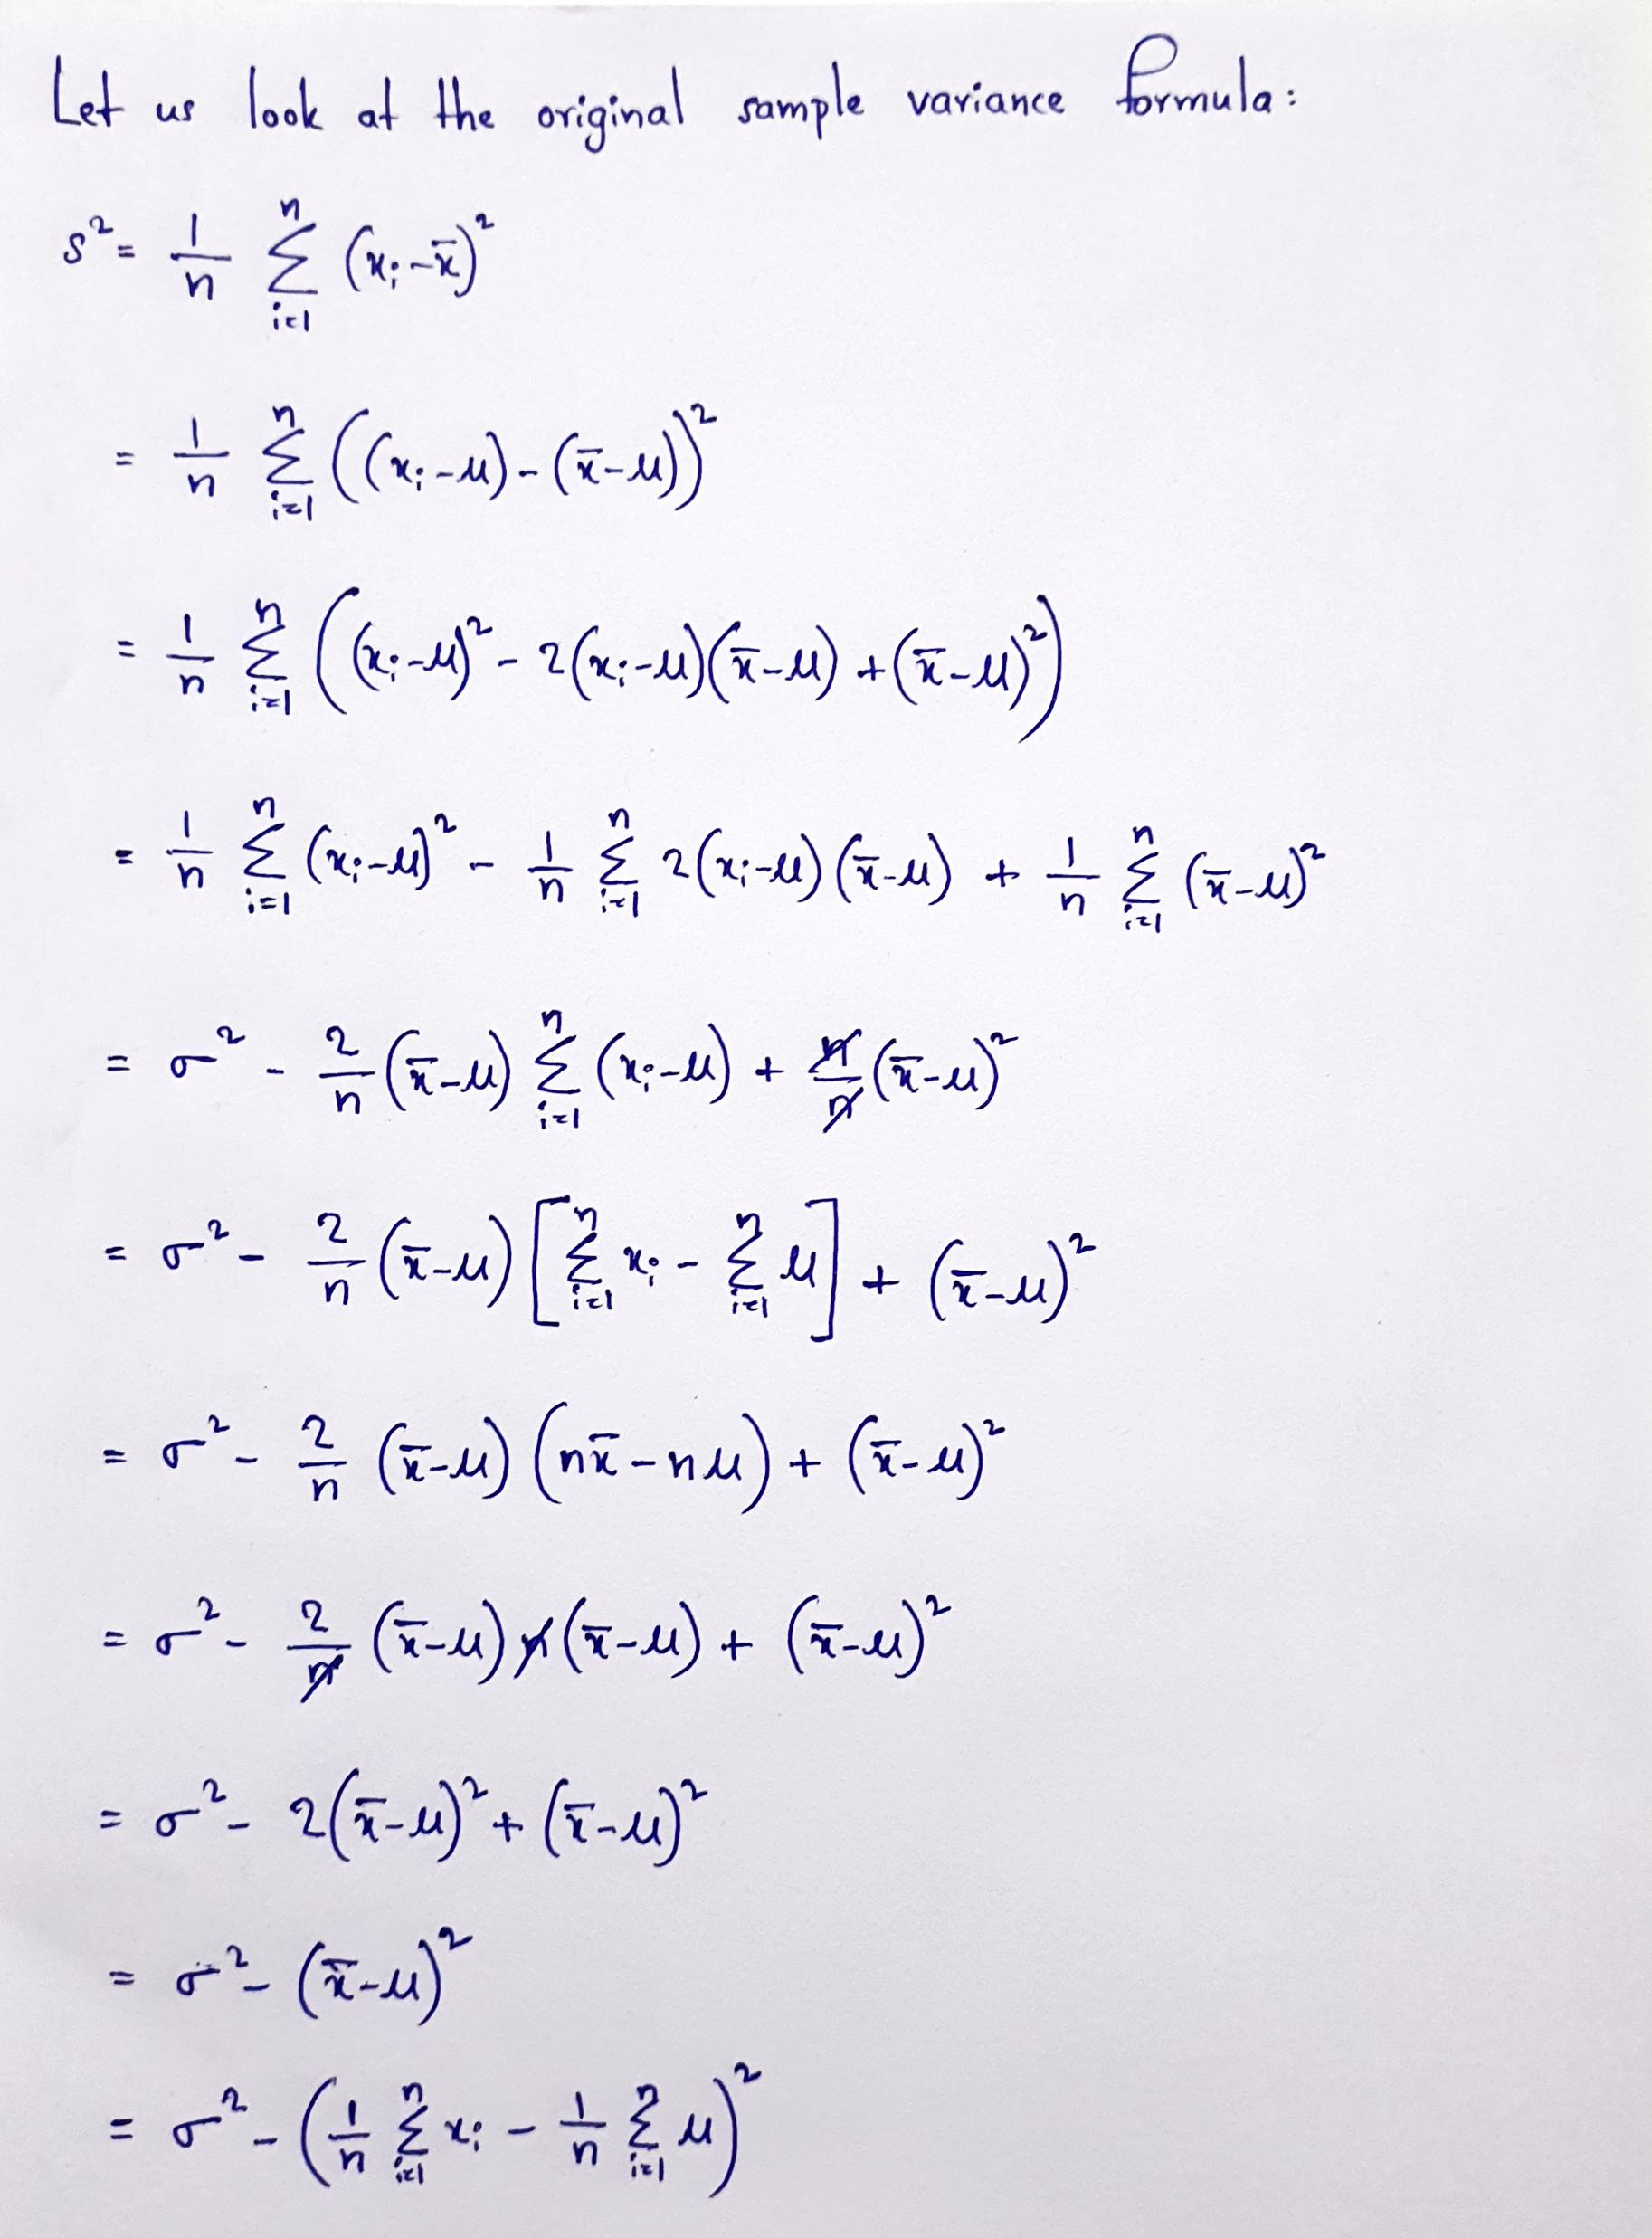 Let us look at the original sample variance formula:
s² = 1/n Σ_{i=1}^{n} (xᵢ - x̄)²
= 1/n Σ_{i=1}^{n} ((xᵢ - μ) - (x̄ - μ))²
= 1/n Σ_{i=1}^{n} ((xᵢ - μ)² - 2(xᵢ - μ)(x̄ - μ) + (x̄ - μ)²)
= 1/n Σ_{i=1}^{n} (xᵢ - μ)² - 1/n Σ_{i=1}^{n} 2(xᵢ - μ)(x̄ - μ) + 1/n Σ_{i=1}^{n} (x̄ - μ)²
= σ² - 2/n (x̄ - μ) Σ_{i=1}^{n} (xᵢ - μ) + n/n (x̄ - μ)²
= σ² - 2/n (x̄ - μ) [Σ_{i=1}^{n} xᵢ - Σ_{i=1}^{n} μ] + (x̄ - μ)²
= σ² - 2/n (x̄ - μ) (nx̄ - nμ) + (x̄ - μ)²
= σ² - 2/n (x̄ - μ) n (x̄ - μ) + (x̄ - μ)²
= σ² - 2(x̄ - μ)² + (x̄ - μ)²
= σ² - (x̄ - μ)²
= σ² - (1/n Σ_{i=1}^{n} xᵢ - 1/n Σ_{i=1}^{n} μ)²